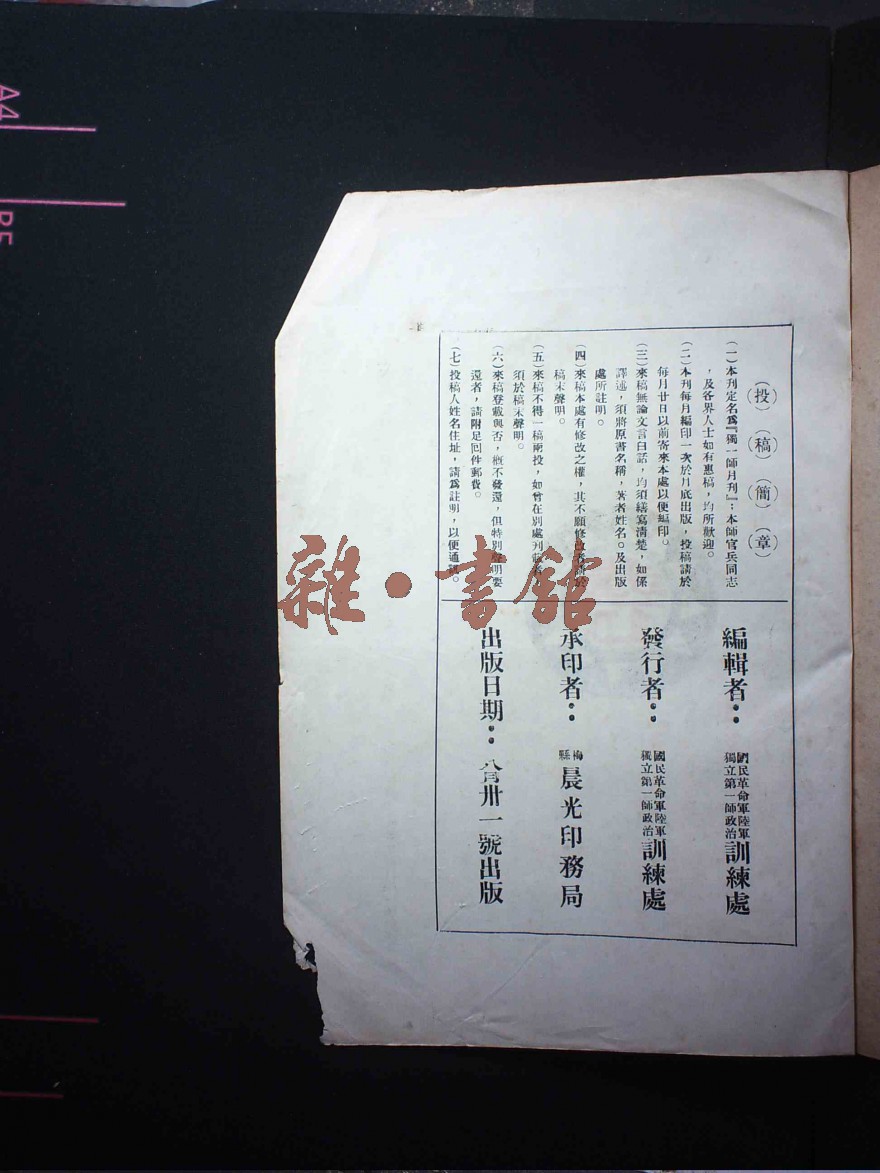 （投）（稿）（簡）（章）
（一）本刊定名爲『獨一師月刊』；本師官兵同志
，及各界人士如有惠稿，均所歡迎。
（二）本刊每月編印一次於月底出版，投稿請於
每月廿日以前寄來本處以便編印。
（三）來稿無論文言白話，均須繕寫清楚，如係
譯述，須將原書名稱，著者姓名。及出版
處所註明。
（四）來稿本處有修改之權，其不願修改者請於
稿末聲明。
（五）來稿不得一稿兩投，如曾在別處刊載
須於稿末聲明。
（六）來稿登載與否，概不發還，但特別聲明要
還者，請附足回件郵費。
（七）投稿人姓名住址，請爲註明，以便通訊。
編輯者：國民革命軍陸軍獨立第一師政治訓練處
發行者：國民革命軍陸軍獨立第一師政治訓練處
承印者：梅縣晨光印務局
出版日期：八月卅一號出版
雜·書館
A4
B5